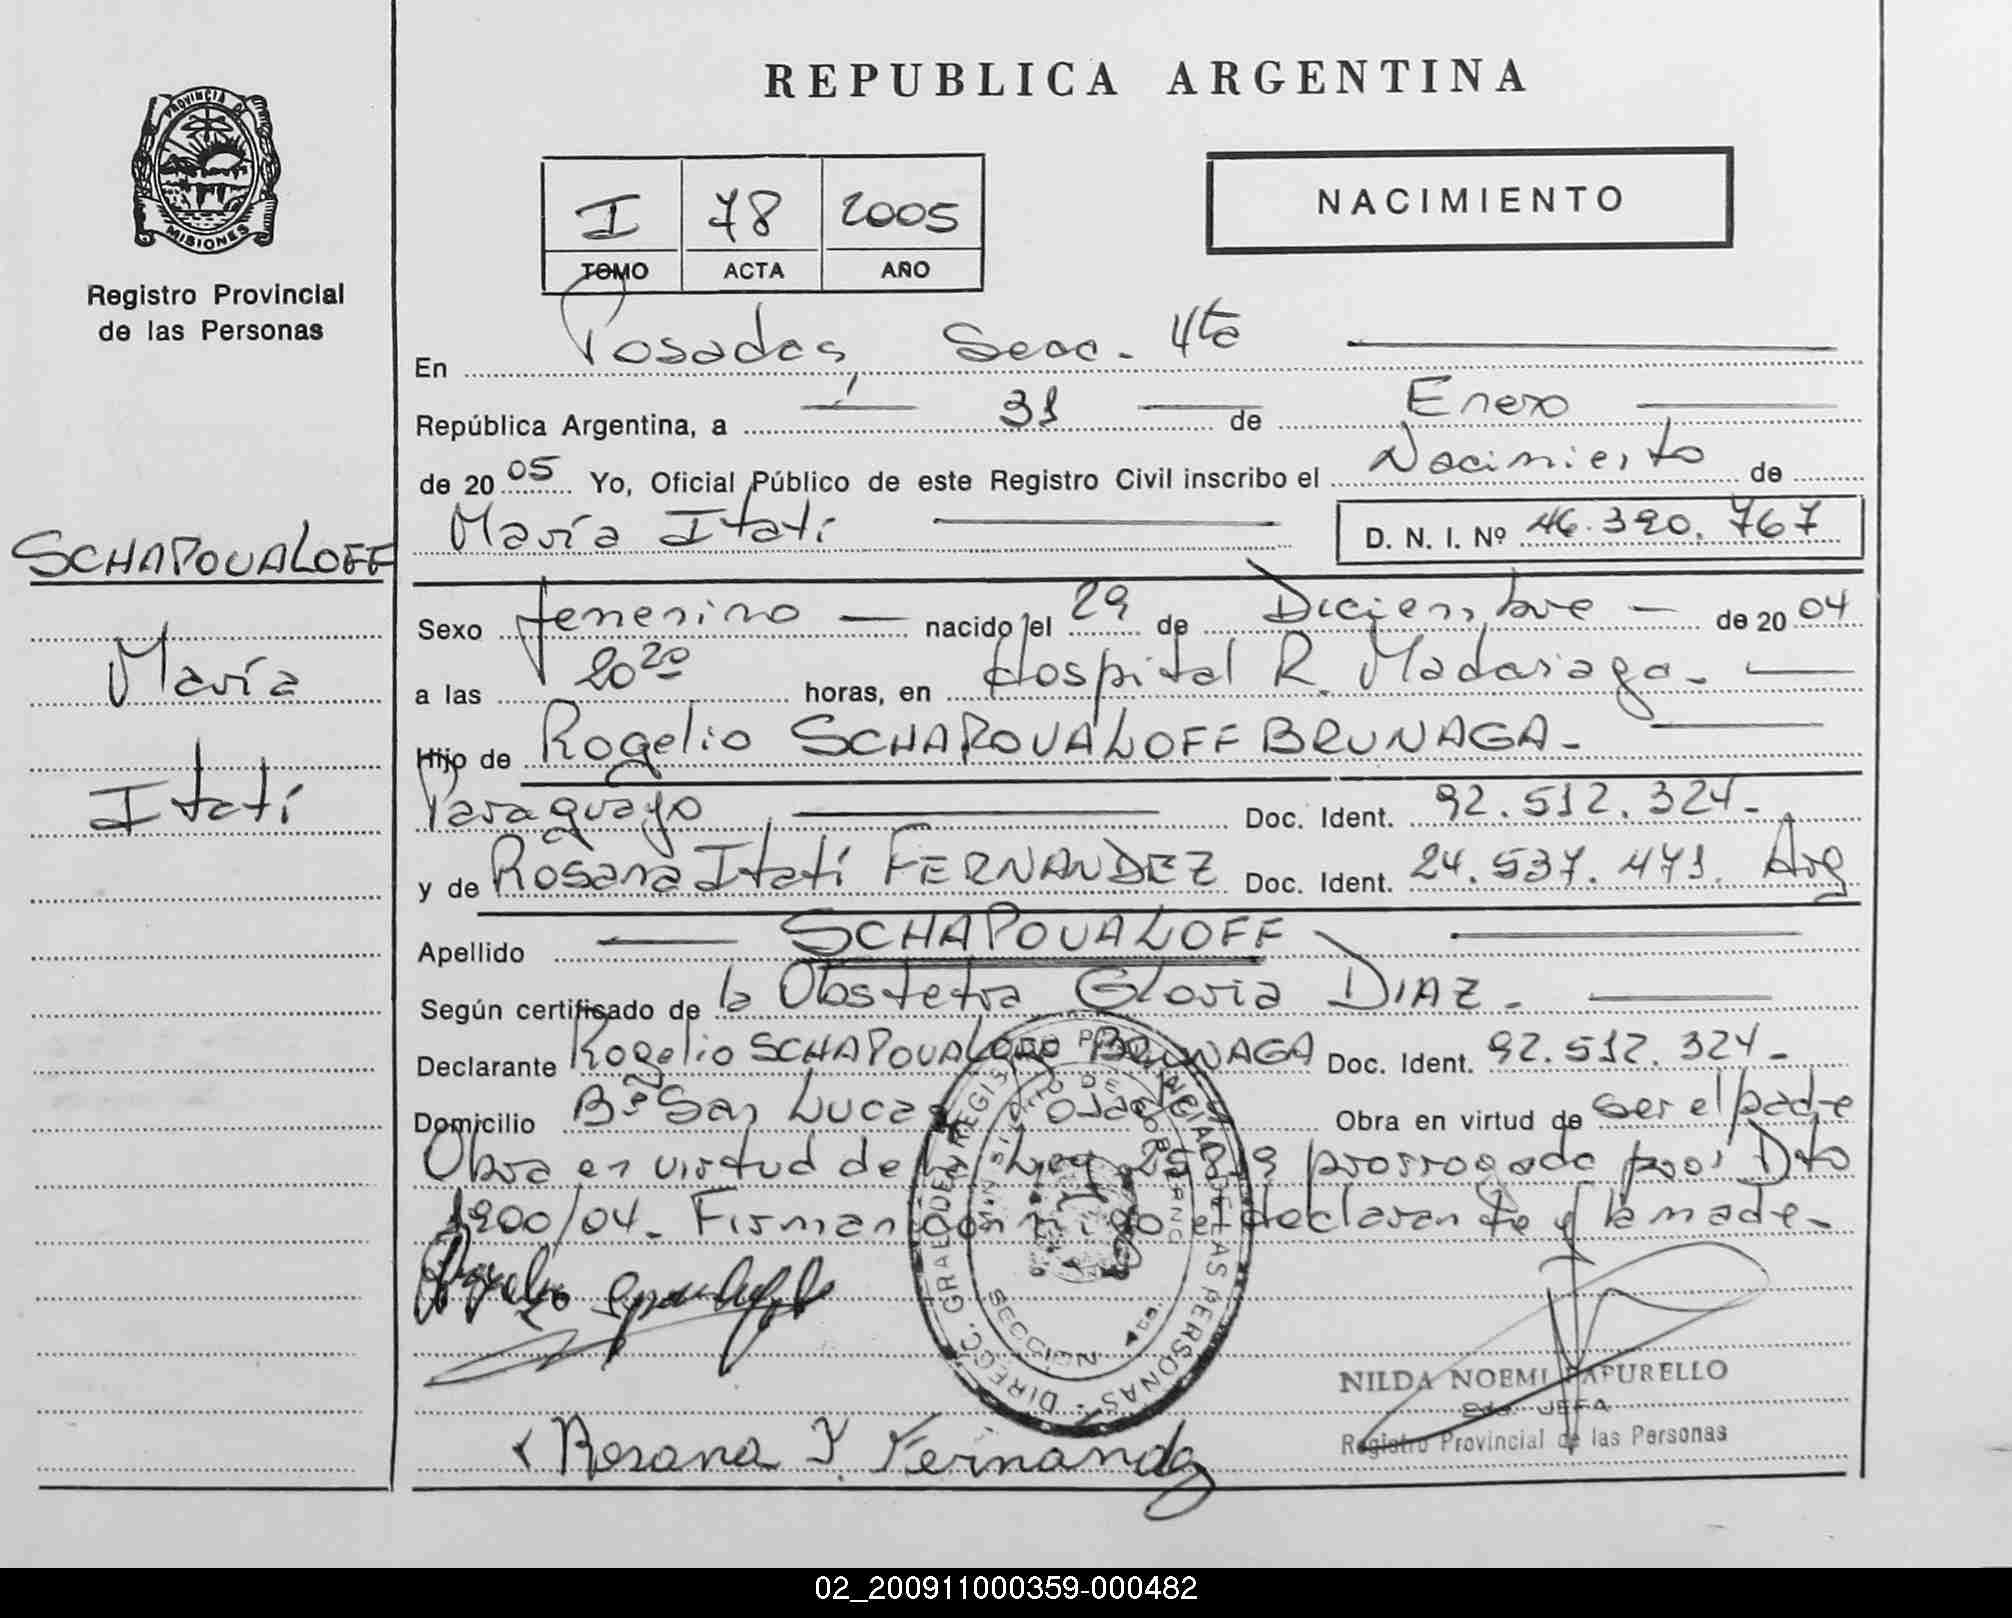 REPUBLICA ARGENTINA
PROVINCIA DE
MISIONES
Registro Provincial
de las Personas
I 78 2005
TOMO ACTA AÑO
NACIMIENTO
En Posadas, Secc. 4ta
República Argentina, a 31 de Enero
de 2005 Yo, Oficial Público de este Registro Civil inscribo el Nacimiento de
María Itatí D. N. I. Nº 46.390.767
SCHAPOVALOFF
María
Itatí
Sexo femenino nacido el 29 de Diciembre de 2004
a las 20 20 horas, en Hospital R. Madariaga.
Hijo de Rogelio SCHAPOVALOFF BRUNAGA.
Paraguayo Doc. Ident. 92.512.324.
y de Rosana Itatí FERNANDEZ Doc. Ident. 24.537.471. Arg
Apellido SCHAPOVALOFF
Según certificado de la Obstetra Gloria DIAZ.
Declarante Rogelio SCHAPOVALOFF BRUNAGA Doc. Ident. 92.512.324.
Domicilio Bº San Lucas Posadas Obra en virtud de ser el padre
Obra en virtud de Ley 25819 prorrogado por Dto
1900/04. Firman conmigo el declarante y la madre.
DIRECC. GRAL. DEL REGISTRO PROVINCIAL DE LAS PERSONAS
MINISTERIO DE GOBIERNO
SECCION 4ta.
NILDA NOEMI PAPURELLO
2da. JEFA
Registro Provincial de las Personas
Rosana I. Fernandez
02_200911000359-000482